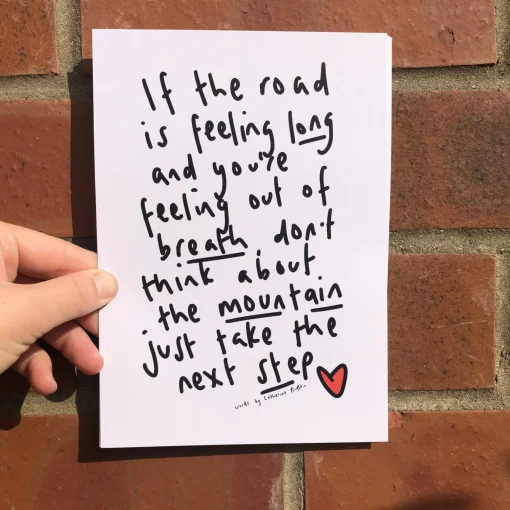 If the road
is feeling long
and you're
feeling out of
breath, don't
think about
the mountain
just take the
next step
words by Catherine